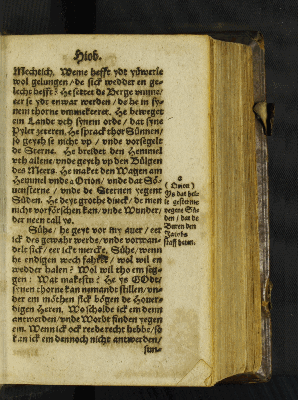 Hiob.
Mechtich. Weme hefft ydt yüwerle
wol gelungen / de sick wedder en ge-
lecht hefft? He settet de Berge vmme/
eer se ydt enwar werden / de he in sy-
nem thorne vmmekeret. He beweget
ein Landt vth synem orde / dat syne
Pyler zeeren. He sprack thor Sünnen/
so geyth se nicht vp / vnde vorsegelt
de Sterne. He breidet den Hemmel
vth allene / vnde geyth vp den Bülgen
des Meers. He maket den Wagen am
Hemmel vnde a Orion / vnde dat Sö-
uensterne / vnde de Sternen yegen
Süden. He deyt grothe dinck / de men
nicht vorförschen kan / vnde Wunder /
der neen tall ys.
Sühe / he geyt vor my auer / eer
ick des gewahr werde / vnde vorwan-
delt sick / eer ick mercke. Sühe / wenn
he endigen wech fahret / wol wil en
wedder halen? Wol wil tho em seg-
gen: Wat makestu? He ys GODt /
synen thorne kan nemandt stillen / vn-
der em möthen sick bögen de Houer-
digen Heren. Wo scholde ick em denn
antwerden / vnde Wordt finden yegen
em. Wenn ick ock reede recht hebbe / so
kan ick em dannoch nicht antwerden /
sün-
a
(Orion)
Ys dat hel-
le gesterne
yegen Sü-
den / dat de
Buren den
Jacobs
staff heten.